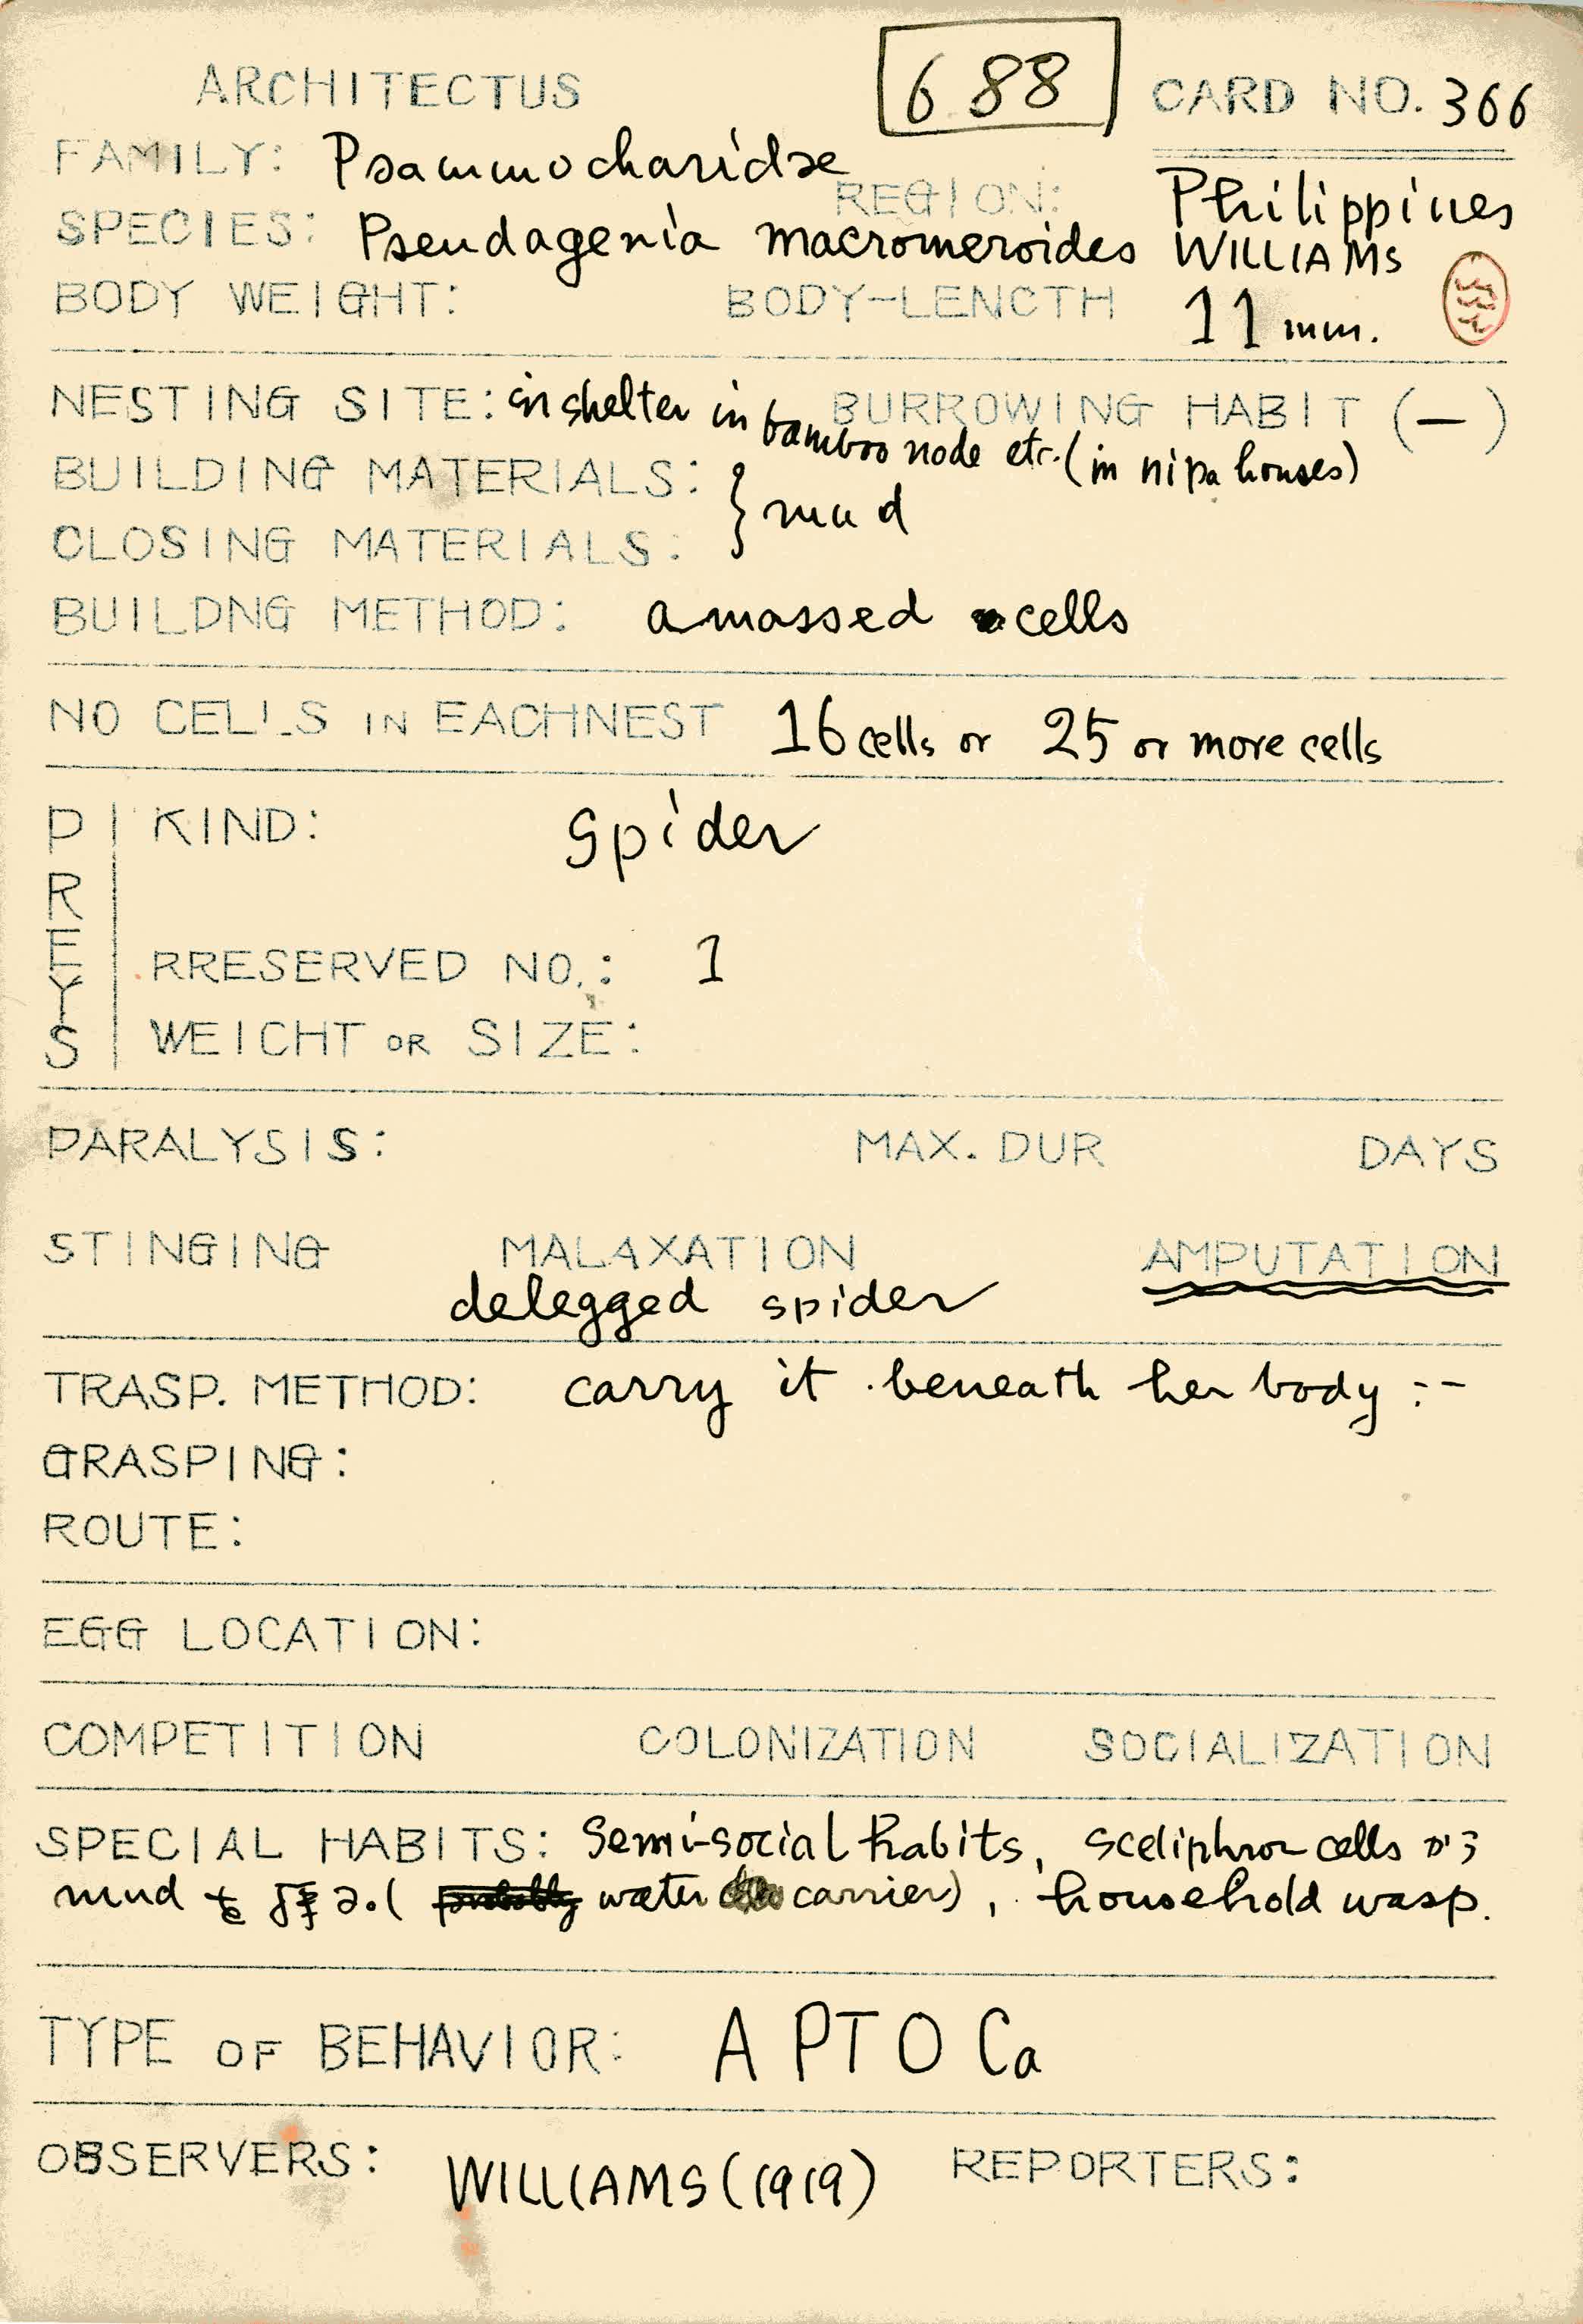 ARCHITECTUS 688 CARD NO. 366
FAMILY: Psammocharidae REGION: Philippines
SPECIES: Pseudagenia macromeroides WILLIAMS
BODY WEIGHT: BODY-LENCTH 11 mm.
NESTING SITE: in shelter in bamboo node etc. (in nipa houses) BURROWING HABIT (—)
BUILDING MATERIALS: } mud
CLOSING MATERIALS:
BUILDNG METHOD: amassed cells
NO CELLS IN EACHNEST 16 cells or 25 or more cells
PREYS
KIND: Spider
RRESERVED NO.: 1
WEICHT OR SIZE:
PARALYSIS: MAX. DUR DAYS
STINGING MALAXATION AMPUTATION
delegged spider
TRASP. METHOD: carry it beneath her body :-
GRASPING:
ROUTE:
EGG LOCATION:
COMPETITION COLONIZATION SOCIALIZATION
SPECIAL HABITS: Semi-social habits, sceliphron cells カラ
mud を 得ル. ( probably water carrier), household wasp.
TYPE OF BEHAVIOR: A PTO Ca
OBSERVERS: WILLIAMS (1919) REPORTERS: